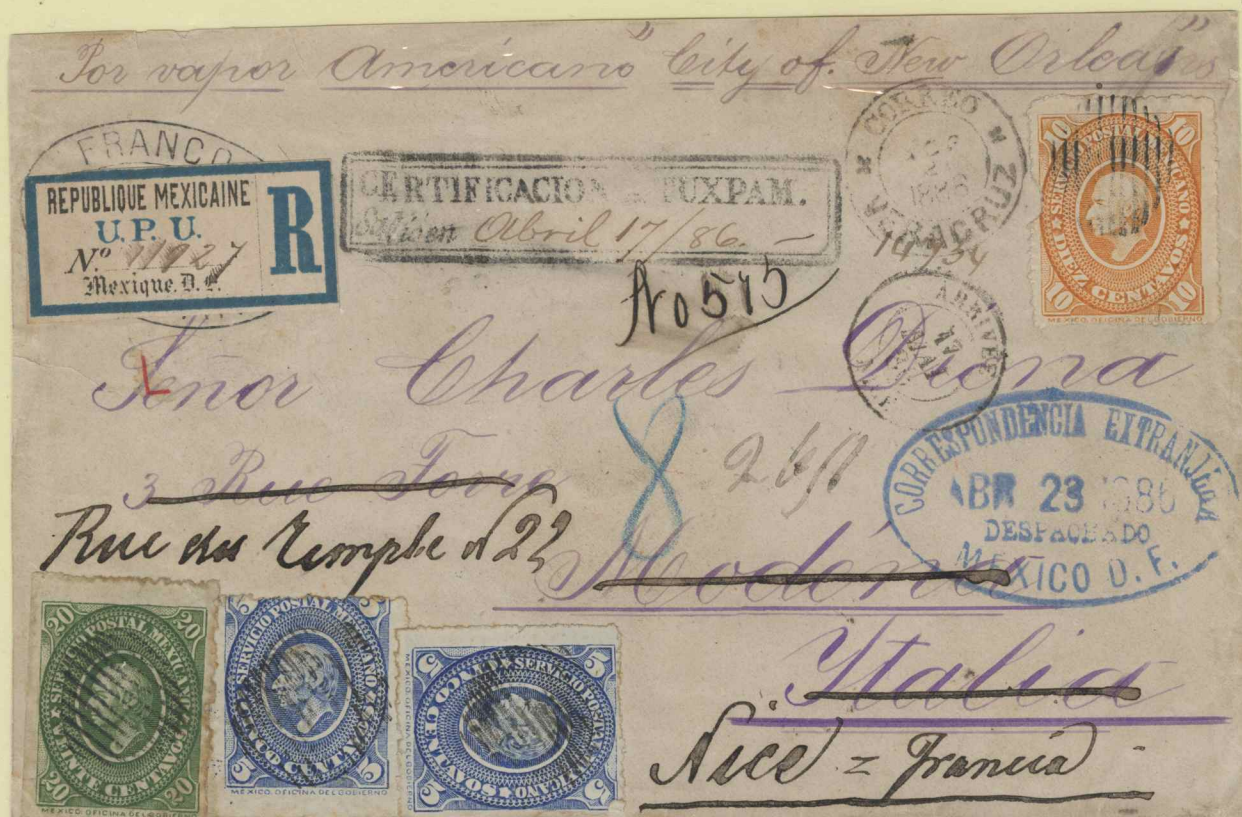 Por vapor Americano "City of. New Orleans"
FRANCO
REPUBLIQUE MEXICAINE
U.P.U.
Nº
Mexique. D. F.
R
CERTIFICACION TUXPAM.
Abril 17/86. —
CORREO
1886
VERACRUZ
10
10
SERVICIO POSTAL MEXICANO
DIEZ CENTAVOS
10
10
MEXICO. OFICINA DEL GOBIERNO
No 515
ARRIVÉE
17
MAI
Señor Charles Diena
L
3 Rue
8
Rue du Temple N 22
Modéna
Italia
CORRESPONDENCIA EXTRANJERA
ABR 23 1886
DESPACHADO
MEXICO D. F.
Nice = Francia -
20
20
SERVICIO POSTAL MEXICANO
VEINTE CENTAVOS
20
20
MEXICO. OFICINA DEL GOBIERNO
SERVICIO POSTAL MEXICANO
5
CINCO CENTAVOS
5
MEXICO. OFICINA DEL GOBIERNO
5
5
SERVICIO POSTAL MEXICANO
CINCO CENTAVOS
5
5
MEXICO. OFICINA DEL GOBIERNO